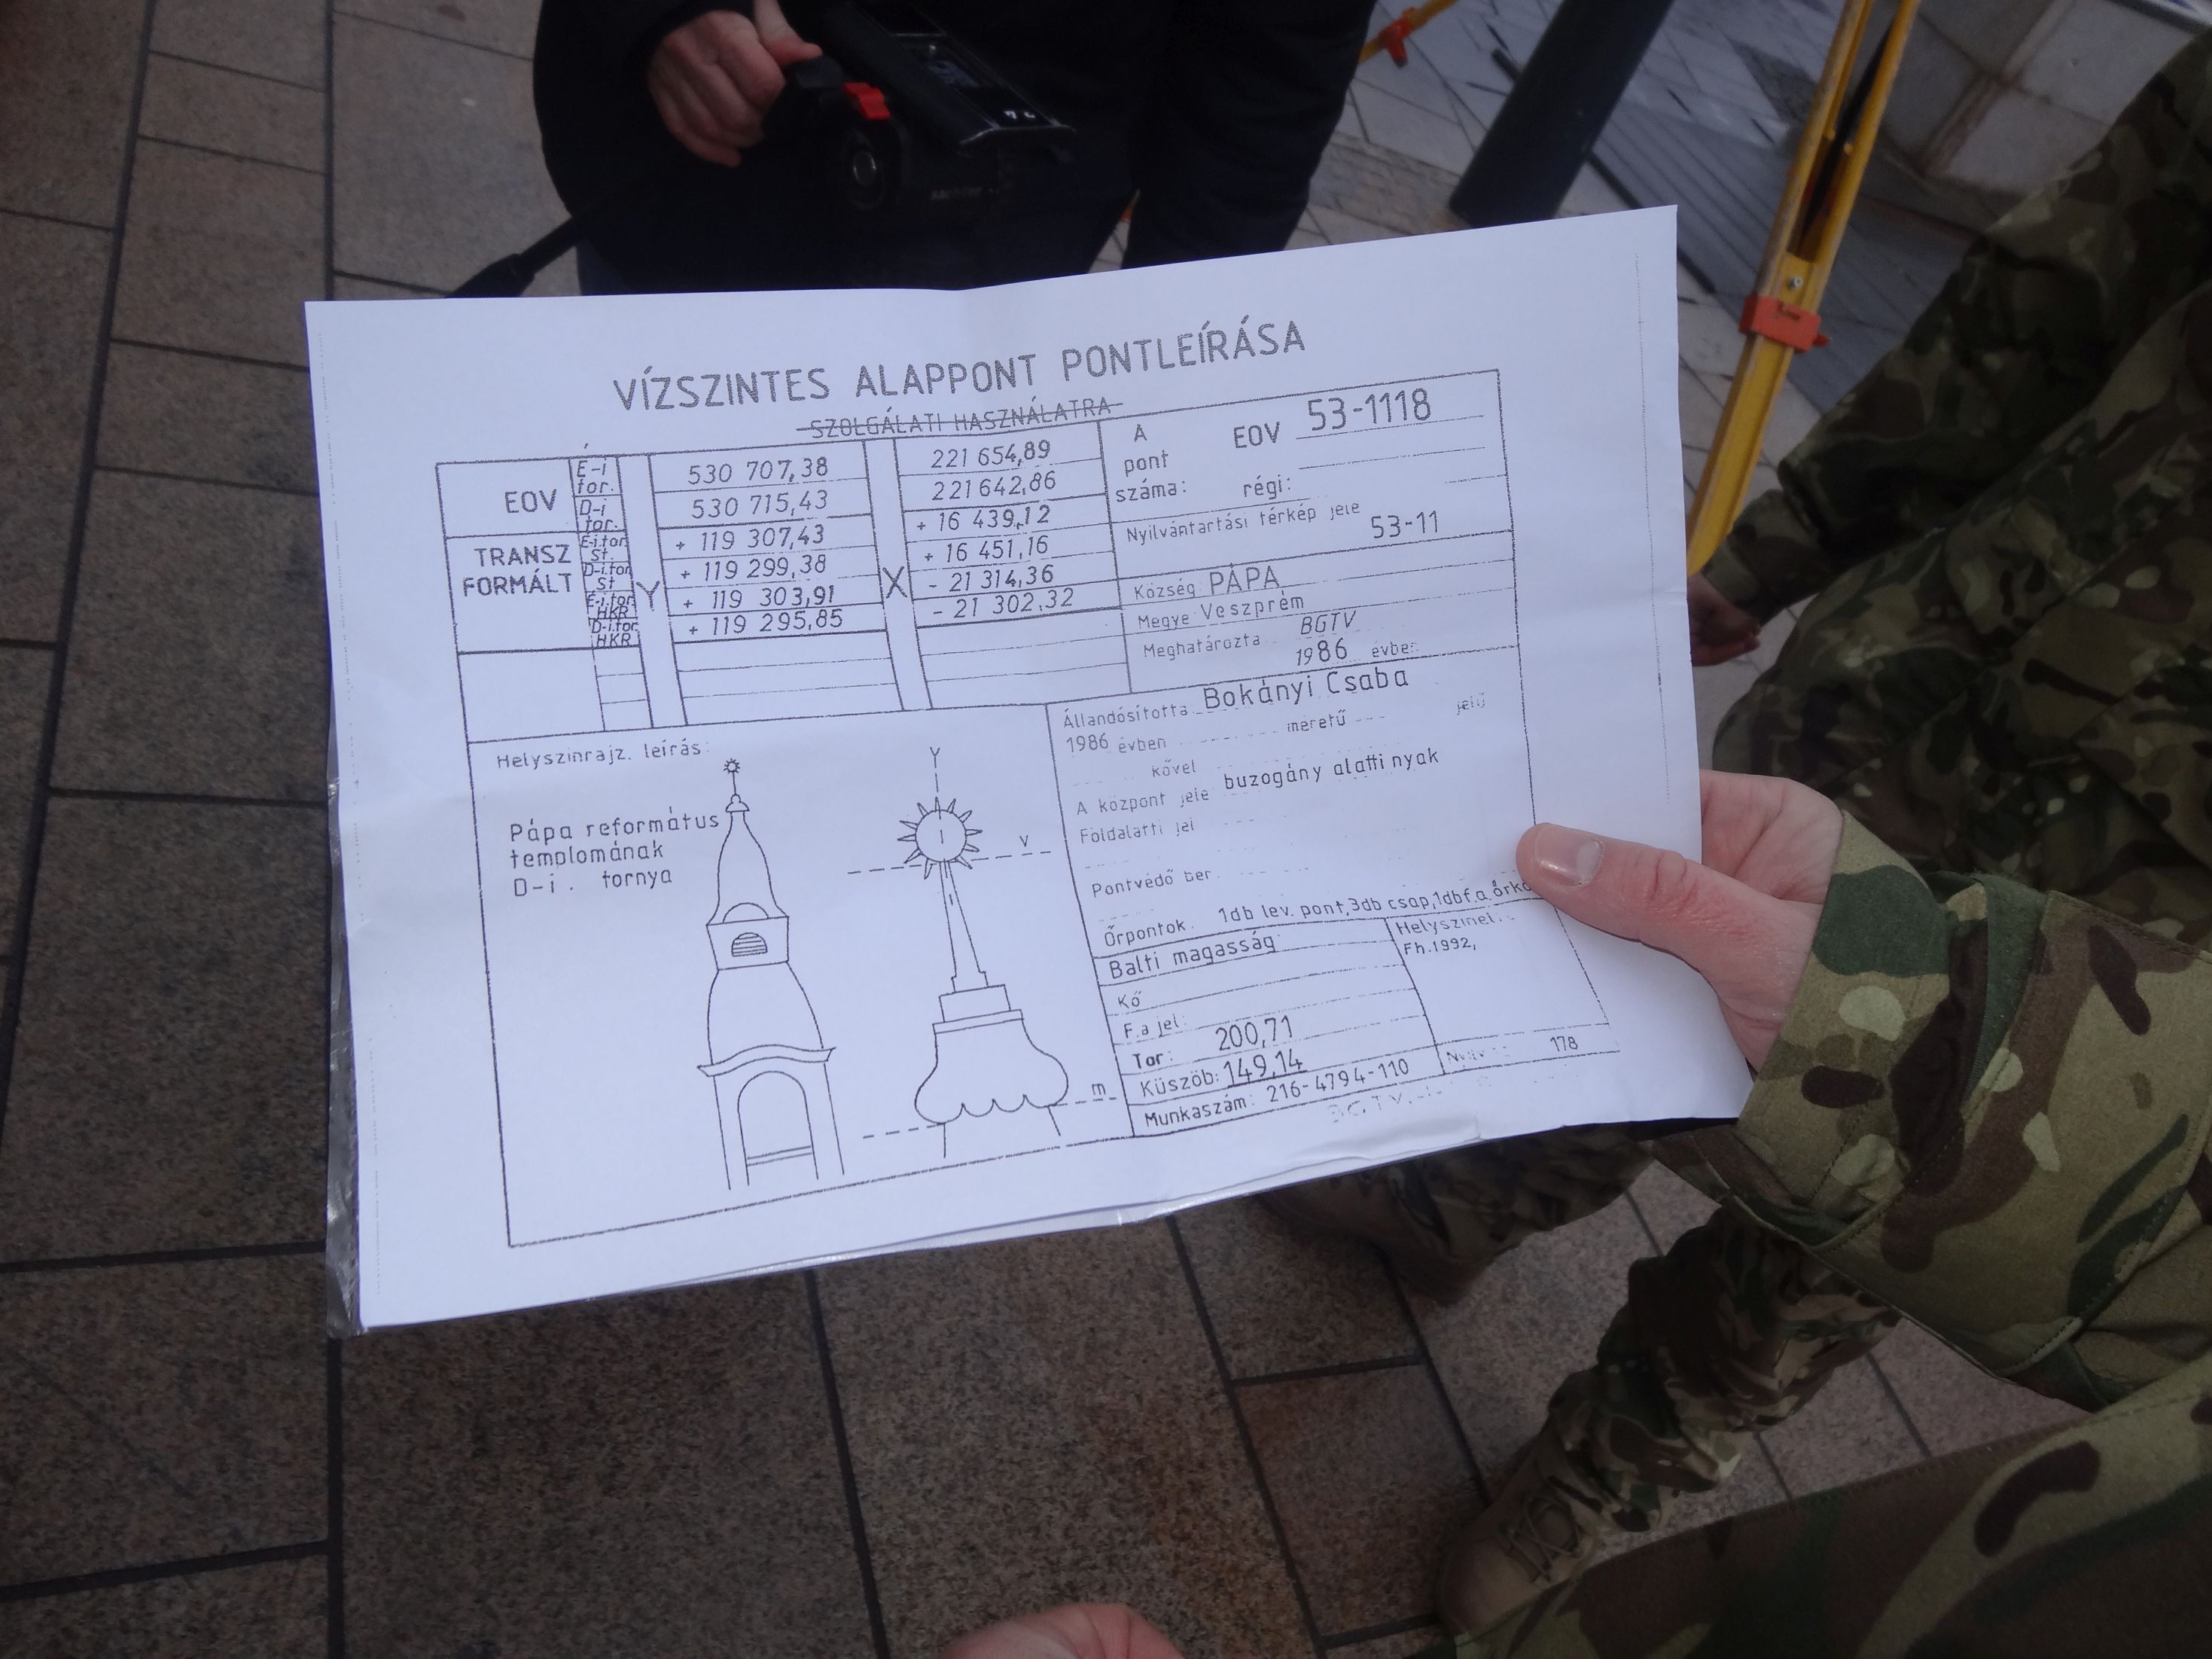 VÍZSZINTES ALAPPONT PONTLEÍRÁSA
SZOLGÁLATI HASZNÁLATRA
EOV
É-i tor.
D-i tor.
TRANSZ
FORMÁLT
É-i.tor St.
D-i.tor St
É-i.tor HKR
D-i.tor HKR
Y
530 707,38
530 715,43
+ 119 307,43
+ 119 299,38
+ 119 303,91
+ 119 295,85
X
221 654,89
221 642,86
+ 16 439,12
+ 16 451,16
- 21 314,36
- 21 302,32
A pont száma:
EOV 53-1118
régi:
Nyilvántartási térkép jele
53-11
Község PÁPA
Megye Veszprém
Meghatározta BGTV
1986 évben
Állandósította Bokányi Csaba
1986 évben méretű jelű
kővel
A központ jele buzogány alatti nyak
Földalatti jel
Pontvédő ber.
Őrpontok 1db lev. pont,3db csap,1db f.a.
Balti magasság
Kő
F.a jel:
Tor: 200,71
Küszöb: 149,14
Munkaszám: 216-4794-110
Helyszínel.:
Fh.1992,
178
BGTV.
Helyszínrajz, leírás:
Pápa református
templomának
D-i. tornya
Y
V
m